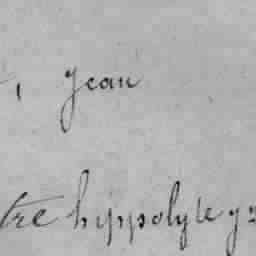 , Jean
tre hyppolyte